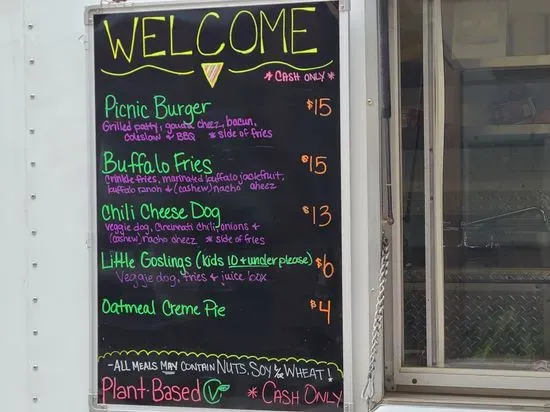 WELCOME
* CASH ONLY *
Picnic Burger $15
Grilled patty, gouda cheez, bacun,
coleslaw & BBQ * side of fries
Buffalo Fries $15
crinkle fries, marinated buffalo jackfruit,
buffalo ranch & (cashew) nacho cheez
Chili Cheese Dog $13
veggie dog, Cincinnati chili, onions &
(cashew) nacho cheez * side of fries
Little Goslings (kids 10 & under please) $6
Veggie dog, fries & juice box
Oatmeal Creme Pie $4
-ALL MEALS MAY CONTAIN NUTS, SOY &/or WHEAT!
Plant-Based V * CASH ONLY